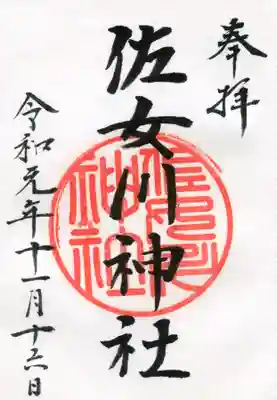 奉拝
佐女川神社
令和元年十一月十六日